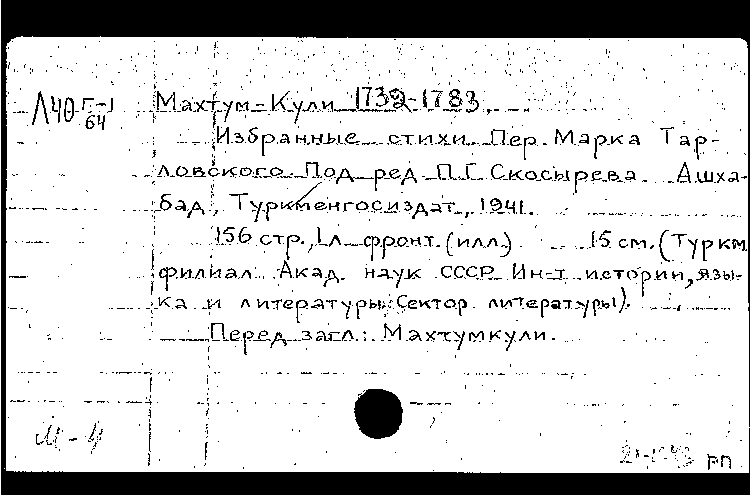 Л40 Г-1 Махтум-Кули 1732-1783.
64
Избранные стихи. Пер. Марка Тар-
ловского. Под ред. П.Г. Скосырева. Ашха-
бад, Туркменгосиздат, 1941.
156 стр., 1 л. фронт. (илл.) 15 см. (Туркм.
филиал Акад. наук СССР. Ин-т истории, язы-
ка и литературы. Сектор литературы).
Перед загл.: Махтумкули.
М-4
рп